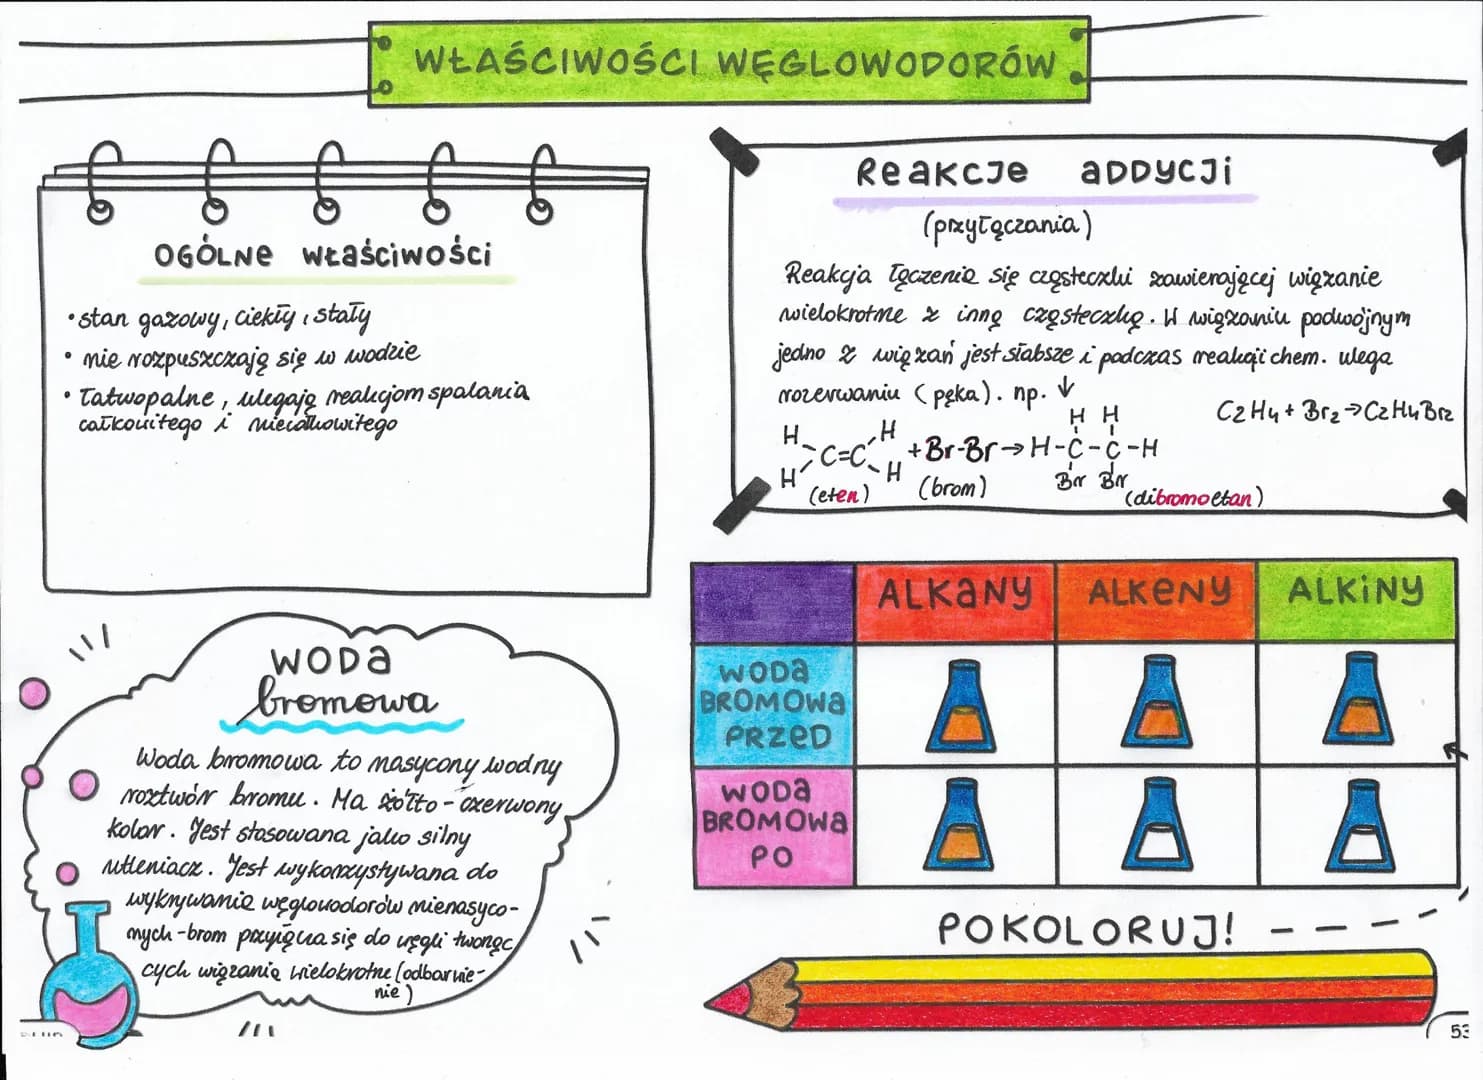 WŁAŚCIWOŚCI WĘGLOWODORÓW
OGÓLNE WŁAŚCIWOŚCI
• stan gazowy, ciekły i stały
• nie rozpuszczają się w wodzie
• łatwopalne, ulegają reakcjom spalania
całkowitego i niecałkowitego
Reakcje addycji
(przyłączania)
Reakcja łączenia się cząsteczki zawierającej wiązanie
wielokrotne z inną cząsteczką. W wiązaniu podwójnym
jedno z wiązań jest słabsze i podczas reakcji chem. ulega
rozerwaniu (pęka). np. ↓
C2H4 + Br2 → C2H4Br2
H H
H H
C=C + Br-Br → H-C-C-H
H H
Br Br
(eten) (brom) (dibromoetan)
WODA
bromowa
Woda bromowa to nasycony wodny
roztwór bromu. Ma żółto-czerwony
kolor. Jest stosowana jako silny
utleniacz. Jest wykorzystywana do
wykrywania węglowodorów nienasyco-
nych - brom przyłącza się do węgli tworzą
cych wiązania wielokrotne (odbarwie-
nie)
ALKANY ALKENY ALKINY
WODA
BROMOWA
PRZED
WODA
BROMOWA
PO
POKOLORUJ!
53